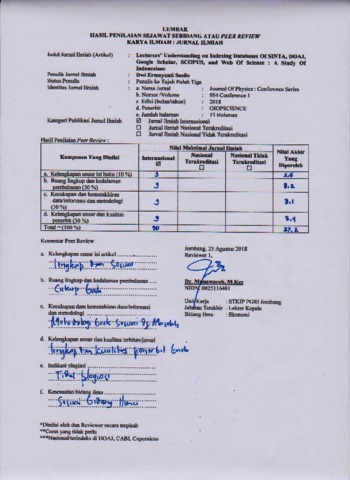 LEMBAR
HASIL PENILAIAN SEJAWAT SEBIDANG ATAU PEER REVIEW
KARYA ILMIAH : JURNAL ILMIAH
Judul Jurnal Ilmiah (Artikel) : Lecturers' Understanding on Indexing Databases Of SINTA, DOAJ,
Google Scholar, SCOPUS, and Web Of Science : A Study Of
Indonesians
Penulis Jurnal Ilmiah : Dwi Ermayanti Susilo
Status Penulis : Penulis ke Tujuh Puluh Tiga
Identitas Jurnal Ilmiah : a. Nama Jurnal : Journal Of Physics : Conference Series
b. Nomor /Volume : 954 Conference 1
c. Edisi (bulan/tahun) : 2018
d. Penerbit : IOPSCIENCE
e. Jumlah halaman : 15 Halaman
Kategori Publikasi Jurnal Ilmiah : ☑ Jurnal Ilmiah Internasional
☐ Jurnal Ilmiah Nasional Terakreditasi
☐ Jurnal Ilmiah Nasional Tidak Terakreditasi
Hasil Penilaian Peer Review :
Komponen Yang Dinilai Nilai Maksimal Jurnal Ilmiah Nilai Akhir Yang Diperoleh
Internasional ☑ Nasional Terakreditasi ☐ Nasional Tidak Terakreditasi ☐
a. Kelengkapan unsur isi buku (10 %) 3
b. Ruang lingkup dan kedalaman pembahasan (30 %) 9 8,2
c. Kecukupan dan kemutakhiran data/informasi dan metodologi (30 %) 9 8,1
d. Kelengkapan unsur dan kualitas penerbit (30 %) 9
Total = (100 %) 30 27,2
Komentar Peer Review
Jombang, 21 Agustus 2018
Reviewer 1,
a. Kelengkapan unsur isi artikel
lengkap dan sesuai
b. Ruang lingkup dan kedalaman pembahasan
Cukup baik
NIDN. 0025116401
c. Kecukupan dan kemutakhiran data/informasi
dan metodologi
Metodologi baik sesuai dg Masalah
Unit Kerja : STKIP PGRI Jombang
Jabatan Terakhir : Lektor Kepala
Bidang Ilmu : Ekonomi
d. Kelengkapan unsur dan kualitas terbitan/jurnal
lengkap dan kualitas penerbit baik
e. Indikasi plagiasi
Tidak plagiasi
f. Kesesuaian bidang ilmu
Sesuai bidang ilmu
*Dinilai oleh dua Reviewer secara terpisah
**Coret yang tidak perlu
***Nasional/terindeks di DOAJ, CABI, Copernicus